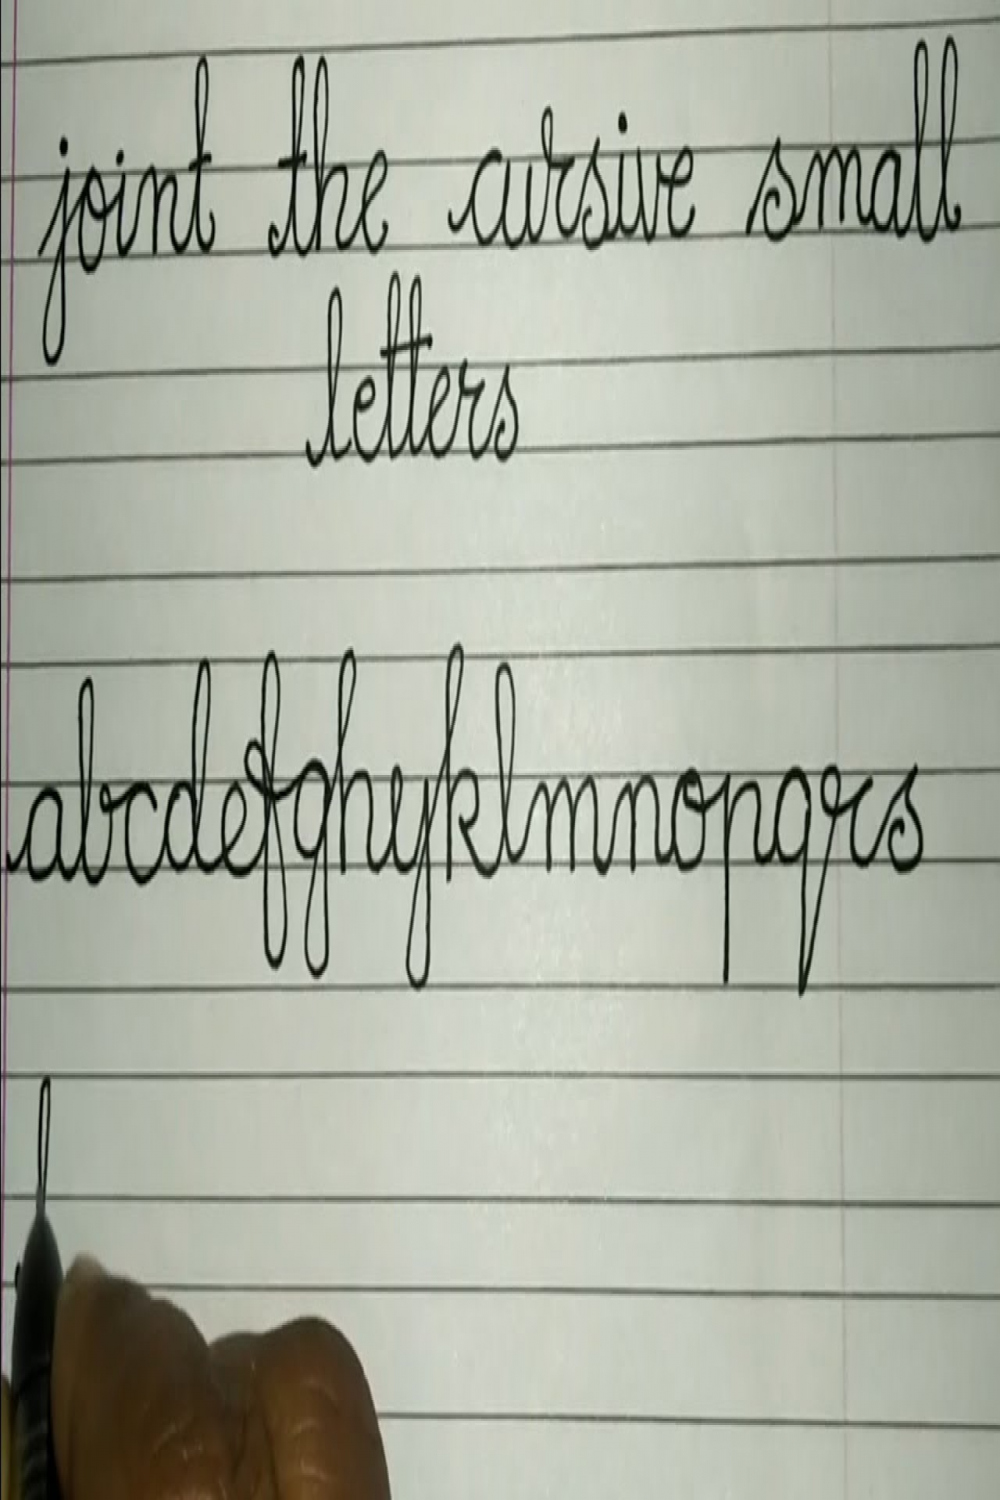 joint the cursive small
letters
abcdefghyklmnopqrs